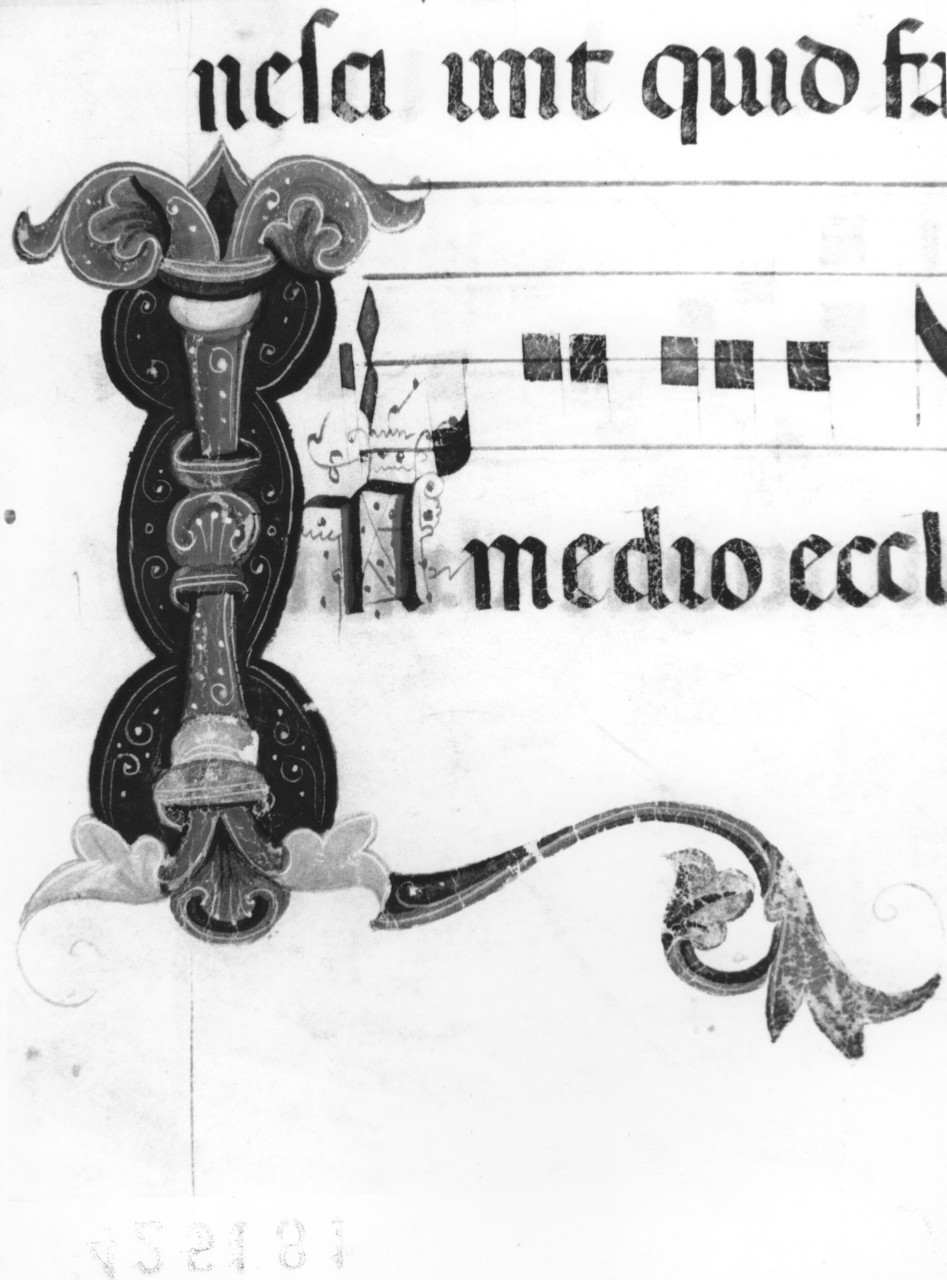 nesci unt quid fa
IN medio eccl
425181